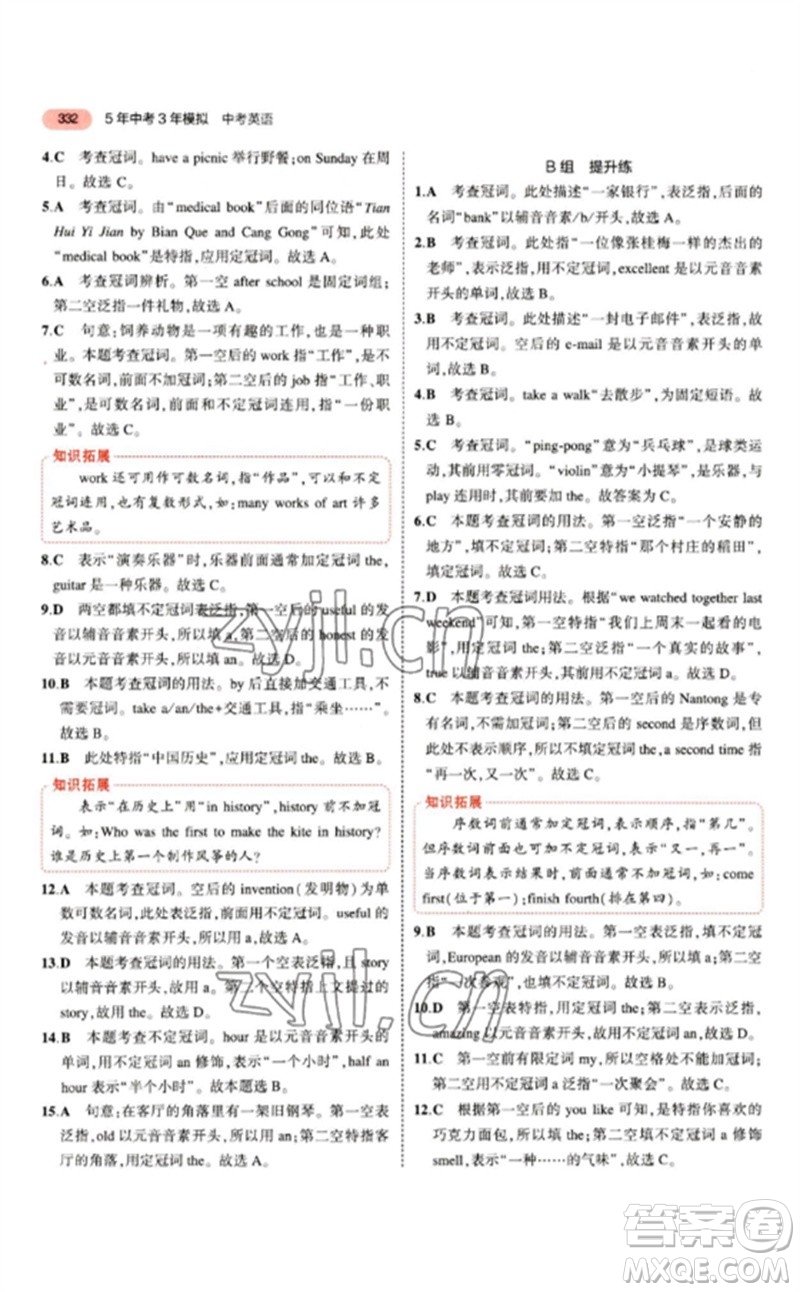 332 5年中考3年模拟 中考英语
4.C 考查冠词。have a picnic 举行野餐;on Sunday 在周
日。故选 C。
5.A 考查冠词。由“medical book”后面的同位语“Tian
Hui Yi Jian by Bian Que and Cang Gong”可知,此处
“medical book”是特指,应用定冠词。故选 A。
6.A 考查冠词辨析。第一空 after school 是固定词组;
第二空泛指一件礼物,故选 A。
7.C 句意:饲养动物是一项有趣的工作,也是一种职
业。本题考查冠词。第一空后的 work 指“工作”,是不
可数名词,前面不加冠词;第二空后的 job 指“工作、职
业”,是可数名词,前面和不定冠词连用,指“一份职
业”。故选 C。
知识拓展
work 还可用作可数名词,指“作品”,可以和不定
冠词连用,也有复数形式,如:many works of art 许多
艺术品。
8.C 表示“演奏乐器”时,乐器前面通常加定冠词 the,
guitar 是一种乐器。故选 C。
9.D 两空都填不定冠词表泛指,第一空后的 useful 的发
音以辅音音素开头,所以填 a,第二空后的 honest 的发
音以元音音素开头,所以填 an。故选 D。
10.B 本题考查冠词的用法。by 后直接加交通工具,不
需要冠词。take a/an/the+交通工具,指“乘坐……”。
故选 B。
11.B 此处特指“中国历史”,应用定冠词 the。故选 B。
知识拓展
表示“在历史上”用“in history”,history 前不加冠
词。如:Who was the first to make the kite in history?
谁是历史上第一个制作风筝的人?
12.A 本题考查冠词。空后的 invention(发明物)为单
数可数名词,此处表泛指,用不定冠词。useful 的
发音以辅音音素开头,所以用 a。故选 A。
13.D 本题考查冠词的用法。第一个空表泛指,且 story
以辅音音素开头,故用 a。第二个空特指上文提过的
story,故用定冠词 the。故选 D。
14.B 本题考查不定冠词。hour 是以元音音素开头的
单词,用不定冠词 an 修饰,表示“一个小时”,half an
hour 表示“半个小时”。故本题选 B。
15.A 句意:在客厅的角落里有一架旧钢琴。第一空表
泛指,old 以元音音素开头,所以用 an;第二空特指客
厅的角落,用定冠词 the。故选 A。
B 组 提升练
1.A 考查冠词。此处描述“一家银行”,表泛指,后面的
名词“bank”以辅音音素/b/开头,故选 A。
2.B 考查冠词。此处指“一位像张桂梅一样的杰出的
老师”,表示泛指,excellent 是以元音音素
开头的单词,故选 B。
3.B 考查冠词。此处描述“一封电子邮件”,表泛指,故
用不定冠词。空后的 e-mail 是以元音音素开头的,故
选 B。
4.B 考查冠词。take a walk“去散步”,为固定短语。故
选 B。
5.C 考查冠词。“ping-pong”意为“乒乓球”,是球类运
动,其前用零冠词。“violin”意为“小提琴”,是乐器,与
play 连用时,其前要加 the。故答案为 C。
6.C 本题考查冠词的用法。第一空泛指“一个安静的
地方”,填不定冠词;第二空特指“那个村庄的稻田”,
填定冠词。故选 C。
7.D 本题考查冠词用法。根据“we watched together last
weekend”可知,第一空特指“我们上周末一起看的电
影”,用定冠词 the;第二空泛指“一个真实的故事”,
true 以辅音音素开头,用不定冠词 a。故选 D。
8.C 本题考查冠词的用法。第一空后的 Nantong 是专
有名词,不填冠词;第二空后的 second 是序数词,但此
处不表示顺序,所以填不定冠词,a second time 指
“再一次,又一次”。故选 C。
知识拓展
序数词前通常加定冠词,表示顺序,指“第几”。
但序数词前面也可加不定冠词,表示“又一,再一”。
当序数词表示结果时,前面可不加冠词,如:come
first(位于第一);finish fourth(排在第四)。
9.B 本题考查冠词的用法。第一空表泛指,填不定冠
词,European 的发音以辅音音素开头,故填 a;第二空
指“一次参观”,表泛指,填不定冠词 a。故选 B。
10.D 第一空表特指,用定冠词 the;第二空表泛指,
amazing 以元音音素开头,故用不定冠词 an。故选 D。
11.C 第一空前有限定词 my,所以空格处不能加冠词;
第二空用不定冠词 a 泛指“一次聚会”。故选 C。
12.C 根据第一空后的 you like 可知,是特指你喜欢的
巧克力面包,所以填 the;第二空用不定冠词 a 修饰
smell,表示“一种……的气味”。故选 C。
zyjl.cn
zyjl.cn
答案圈
MXQE.COM